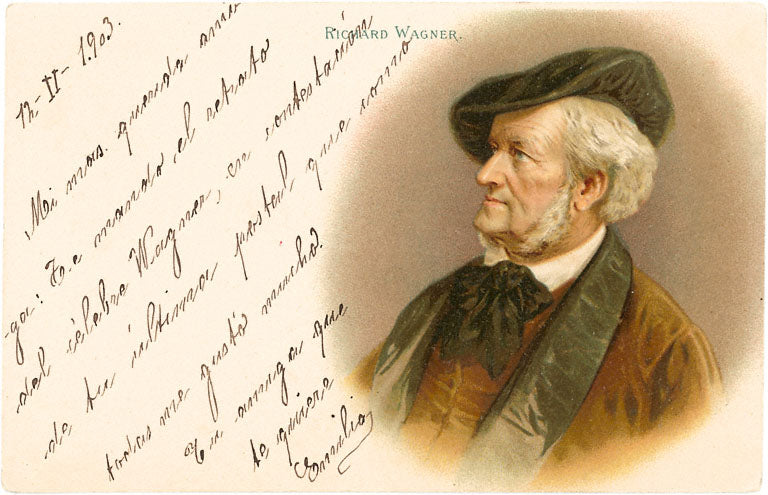 RICHARD WAGNER.
12-II-1903.
Mi mas querida ami
-ga: Te mando el retrato
del célebre Wagner, en contestación
de tu última postal que como
todas me gustó mucho.
Tu amiga que
te quiere
Emilia